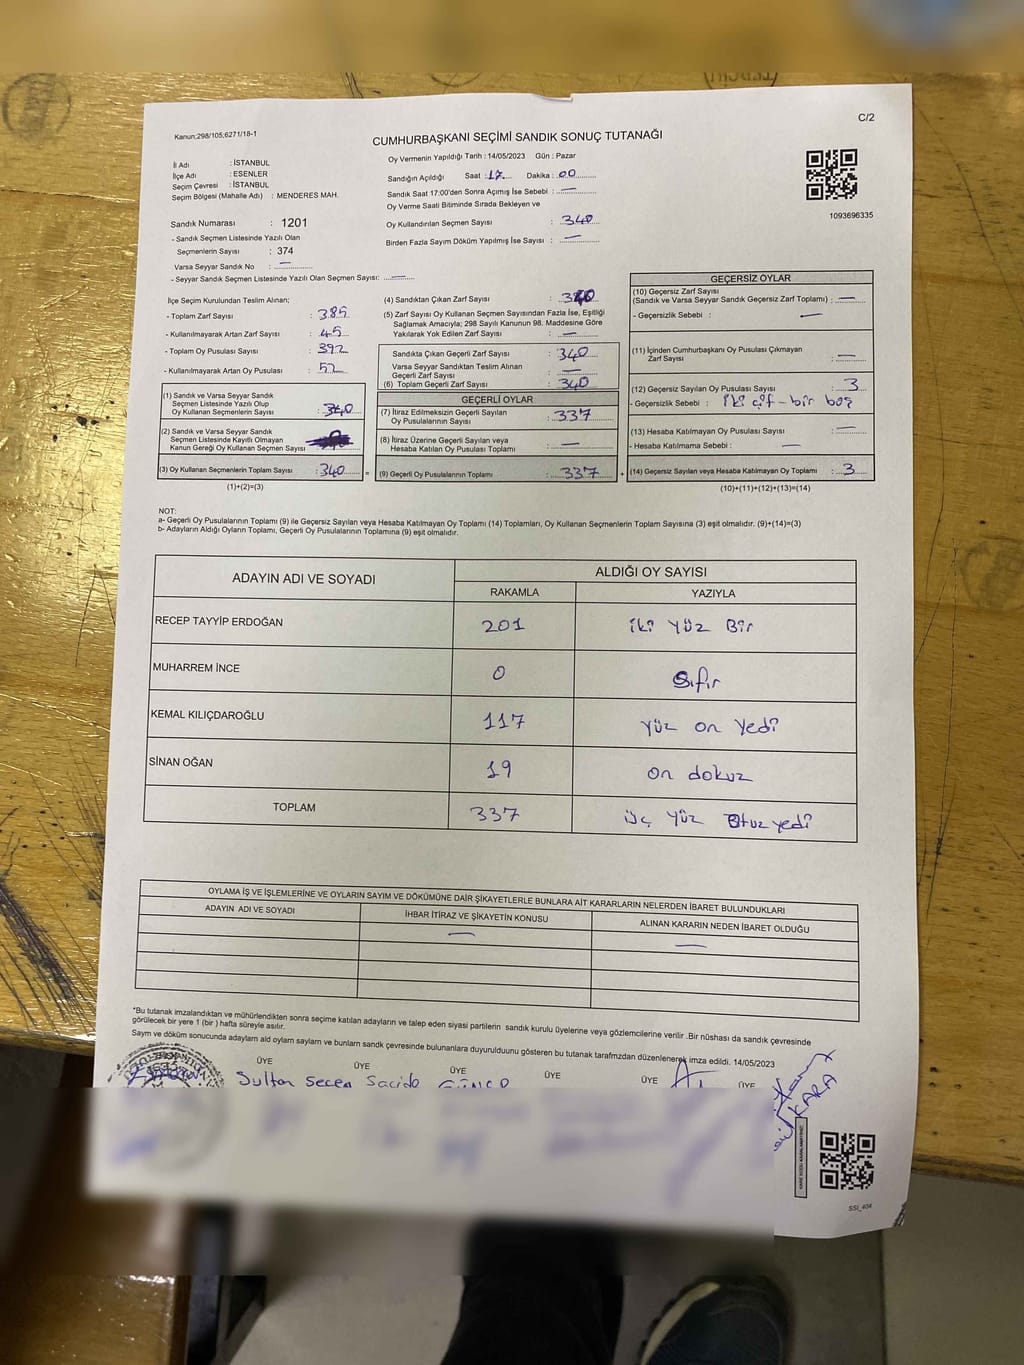 C/2
Kanun;298/105;6271/18-1
CUMHURBAŞKANI SEÇİMİ SANDIK SONUÇ TUTANAĞI
İl Adı : İSTANBUL
İlçe Adı : ESENLER
Seçim Çevresi : İSTANBUL
Seçim Bölgesi (Mahalle Adı) : MENDERES MAH.
Sandık Numarası : 1201
- Sandık Seçmen Listesinde Yazılı Olan
Seçmenlerin Sayısı : 374
Varsa Seyyar Sandık No : —
- Seyyar Sandık Seçmen Listesinde Yazılı Olan Seçmen Sayısı: —
Oy Vermenin Yapıldığı Tarih : 14/05/2023 Gün : Pazar
Sandığın Açıldığı Saat : 17 Dakika : 00
Sandık Saat 17:00'den Sonra Açımış İse Sebebi : —
Oy Verme Saati Bitiminde Sırada Bekleyen ve
Oy Kullandırılan Seçmen Sayısı : 340
Birden Fazla Sayım Döküm Yapılmış İse Sayısı : —
1093696335
İlçe Seçim Kurulundan Teslim Alınan;
- Toplam Zarf Sayısı : 385
- Kullanılmayarak Artan Zarf Sayısı : 45
- Toplam Oy Pusulası Sayısı : 392
- Kullanılmayarak Artan Oy Pusulası : 52
(1) Sandık ve Varsa Seyyar Sandık
Seçmen Listesinde Yazılı Olup
Oy Kullanan Seçmenlerin Sayısı : 340
(2) Sandık ve Varsa Seyyar Sandık
Seçmen Listesinde Kayıtlı Olmayan
Kanun Gereği Oy Kullanan Seçmen Sayısı :
(3) Oy Kullanan Seçmenlerin Toplam Sayısı : 340 =
(1)+(2)=(3)
(4) Sandıktan Çıkan Zarf Sayısı : 340
(5) Zarf Sayısı Oy Kullanan Seçmen Sayısından Fazla İse, Eşitliği
Sağlamak Amacıyla; 298 Sayılı Kanunun 98. Maddesine Göre
Yakılarak Yok Edilen Zarf Sayısı : —
Sandıkta Çıkan Geçerli Zarf Sayısı : 340
Varsa Seyyar Sandıktan Teslim Alınan
Geçerli Zarf Sayısı : —
(6) Toplam Geçerli Zarf Sayısı : 340
GEÇERLİ OYLAR
(7) İtiraz Edilmeksizin Geçerli Sayılan
Oy Pusulalarının Sayısı : 337
(8) İtiraz Üzerine Geçerli Sayılan veya
Hesaba Katılan Oy Pusulası Toplamı : —
(9) Geçerli Oy Pusulalarının Toplamı : 337 +
GEÇERSİZ OYLAR
(10) Geçersiz Zarf Sayısı
(Sandık ve Varsa Seyyar Sandık Geçersiz Zarf Toplamı) : —
- Geçersizlik Sebebi : —
(11) İçinden Cumhurbaşkanı Oy Pusulası Çıkmayan
Zarf Sayısı : —
(12) Geçersiz Sayılan Oy Pusulası Sayısı : 3
- Geçersizlik Sebebi : iki çift - bir boş
(13) Hesaba Katılmayan Oy Pusulası Sayısı : —
- Hesaba Katılmama Sebebi : —
(14) Geçersiz Sayılan veya Hesaba Katılmayan Oy Toplamı : 3
(10)+(11)+(12)+(13)=(14)
NOT:
a- Geçerli Oy Pusulalarının Toplamı (9) ile Geçersiz Sayılan veya Hesaba Katılmayan Oy Toplamı (14) Toplamları, Oy Kullanan Seçmenlerin Toplam Sayısına (3) eşit olmalıdır. (9)+(14)=(3)
b- Adayların Aldığı Oyların Toplamı, Geçerli Oy Pusulalarının Toplamına (9) eşit olmalıdır.
ADAYIN ADI VE SOYADI ALDIĞI OY SAYISI
RAKAMLA YAZIYLA
RECEP TAYYİP ERDOĞAN 201 iki Yüz Bir
MUHARREM İNCE 0 Sıfır
KEMAL KILIÇDAROĞLU 117 Yüz on Yedi
SİNAN OĞAN 19 on dokuz
TOPLAM 337 Üç Yüz Otuz yedi
OYLAMA İŞ VE İŞLEMLERİNE VE OYLARIN SAYIM VE DÖKÜMÜNE DAİR ŞİKAYETLERLE BUNLARA AİT KARARLARIN NELERDEN İBARET BULUNDUKLARI
ADAYIN ADI VE SOYADI İHBAR İTİRAZ VE ŞİKAYETİN KONUSU ALINAN KARARIN NEDEN İBARET OLDUĞU
— —
*Bu tutanak imzalandıktan ve mühürlendikten sonra seçime katılan adayların ve talep eden siyasi partilerin sandık kurulu üyelerine veya gözlemcilerine verilir .Bir nüshası da sandık çevresinde
görülecek bir yere 1 (bir ) hafta süreyle asılır.
Sayım ve döküm sonucunda adayların ald oyların sayıların ve bunların sandk çevresinde bulunanlara duyurulduunu gösteren bu tutanak tarafmzdan düzenlenerek imza edildi. 14/05/2023
ÜYE ÜYE ÜYE ÜYE ÜYE ÜYE
Sultan Seçen Sacide
KARA
SSI_404